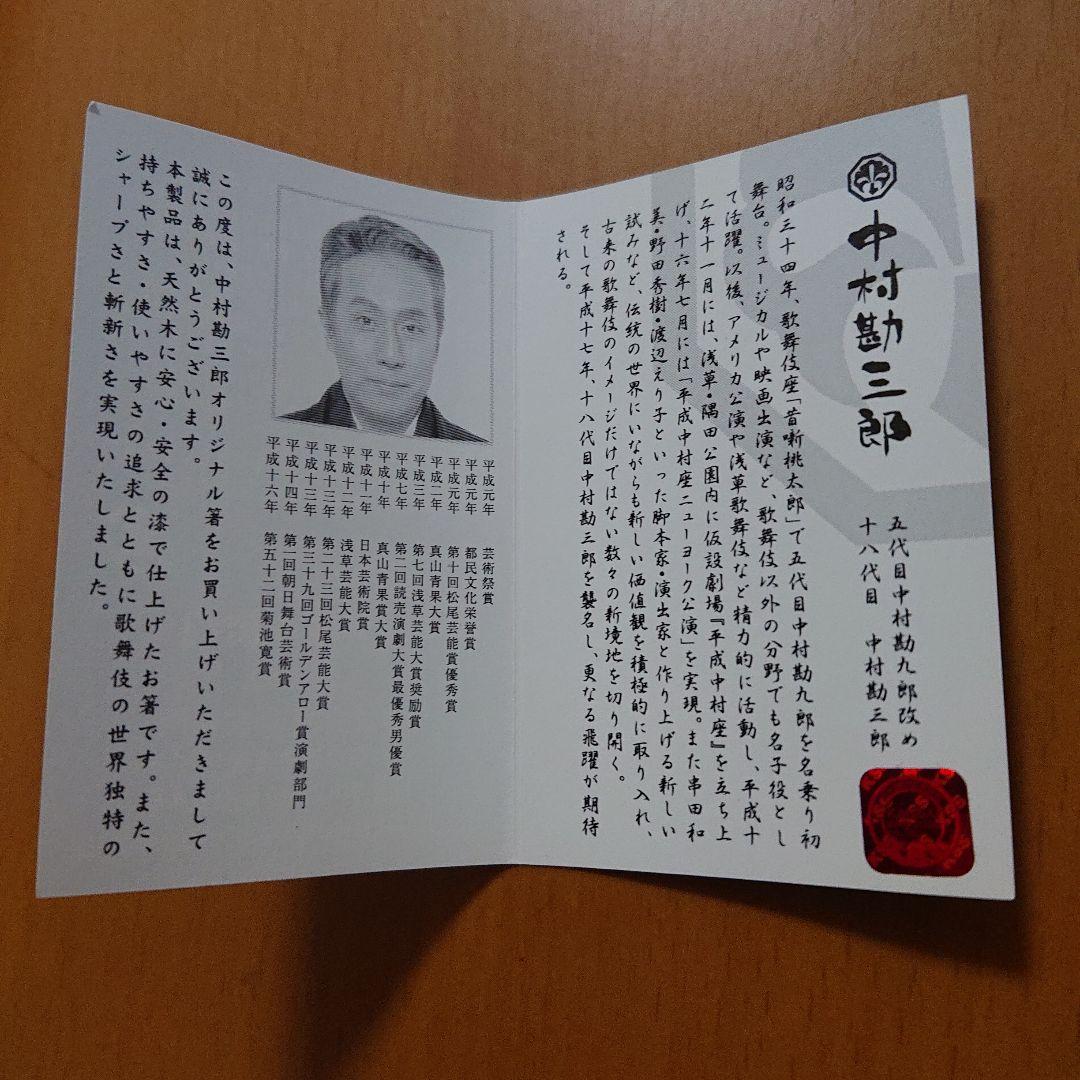 中村勘三郎
五代目中村勘九郎改め
十八代目 中村勘三郎
昭和三十四年、歌舞伎座「昔噺桃太郎」で五代目中村勘九郎を名乗り初
舞台。ミュージカルや映画出演など、歌舞伎以外の分野でも名子役とし
て活躍。以後、アメリカ公演や浅草歌舞伎など精力的に活動し、平成十
二年十一月には、浅草・隅田公園内に仮設劇場『平成中村座』を立ち上
げ、十六年七月には「平成中村座ニューヨーク公演」を実現。また串田和
美・野田秀樹・渡辺えり子といった脚本家・演出家と作り上げる新しい
試みなど、伝統の世界にいながらも新しい価値観を積極的に取り入れ、
古来の歌舞伎のイメージだけではない数々の新境地を切り開く。
そして平成十七年、十八代目中村勘三郎を襲名し、更なる飛躍が期待
される。
平成元年 芸術祭賞
平成元年 都民文化栄誉賞
平成元年 第十回松尾芸能賞優秀賞
平成二年 真山青果大賞
平成三年 第七回浅草芸能大賞奨励賞
平成七年 第二回読売演劇大賞最優秀男優賞
平成十年 真山青果賞大賞
平成十一年 日本芸術院賞
平成十二年 浅草芸能大賞
平成十三年 第二十三回松尾芸能大賞
平成十三年 第三十九回ゴールデンアロー賞演劇部門
平成十四年 第一回朝日舞台芸術賞
平成十六年 第五十二回菊池寛賞
この度は、中村勘三郎オリジナル箸をお買い上げいただきまして
誠にありがとうございます。
本製品は、天然木に安心・安全の漆で仕上げたお箸です。また、
持ちやすさ・使いやすさの追求とともに歌舞伎の世界独特の
シャープさと斬新さを実現いたしました。